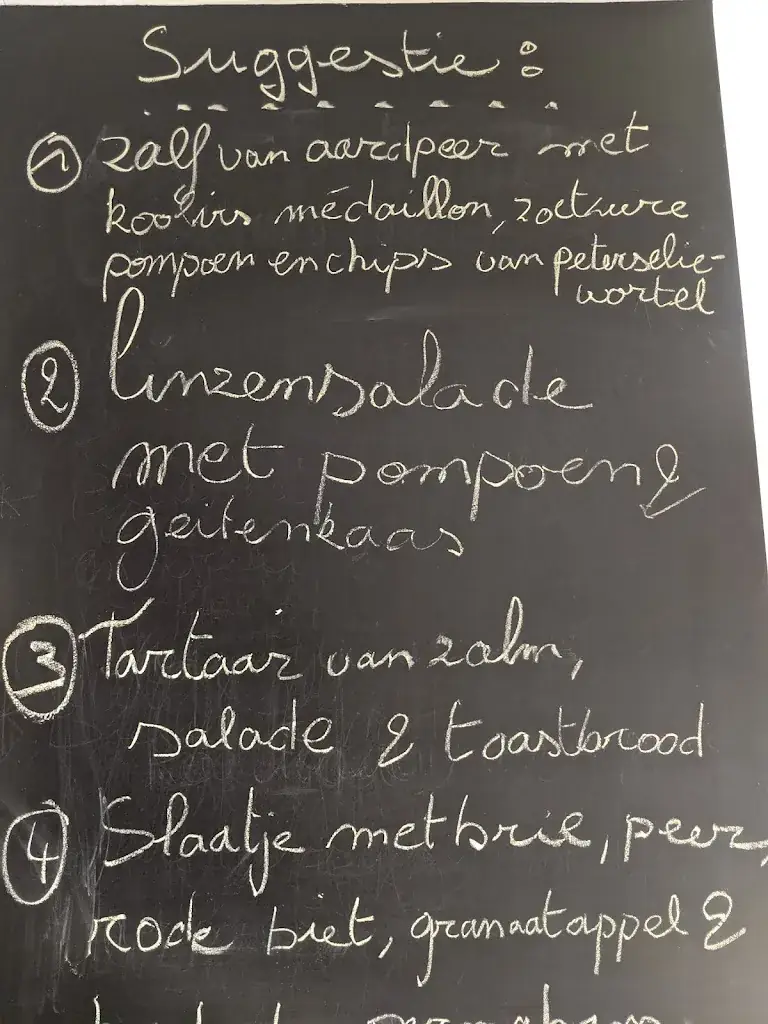 Suggestie :
1 zalf van aardpeer met
koolvis médaillon, zoetzure
pompoen en chips van peterselie-
wortel
2 linzensalade
met pompoen &
geitenkaas
3 Tartaar van zalm,
salade & toastbrood
4 Slaatje met brie, peer,
rode biet, granaatappel &